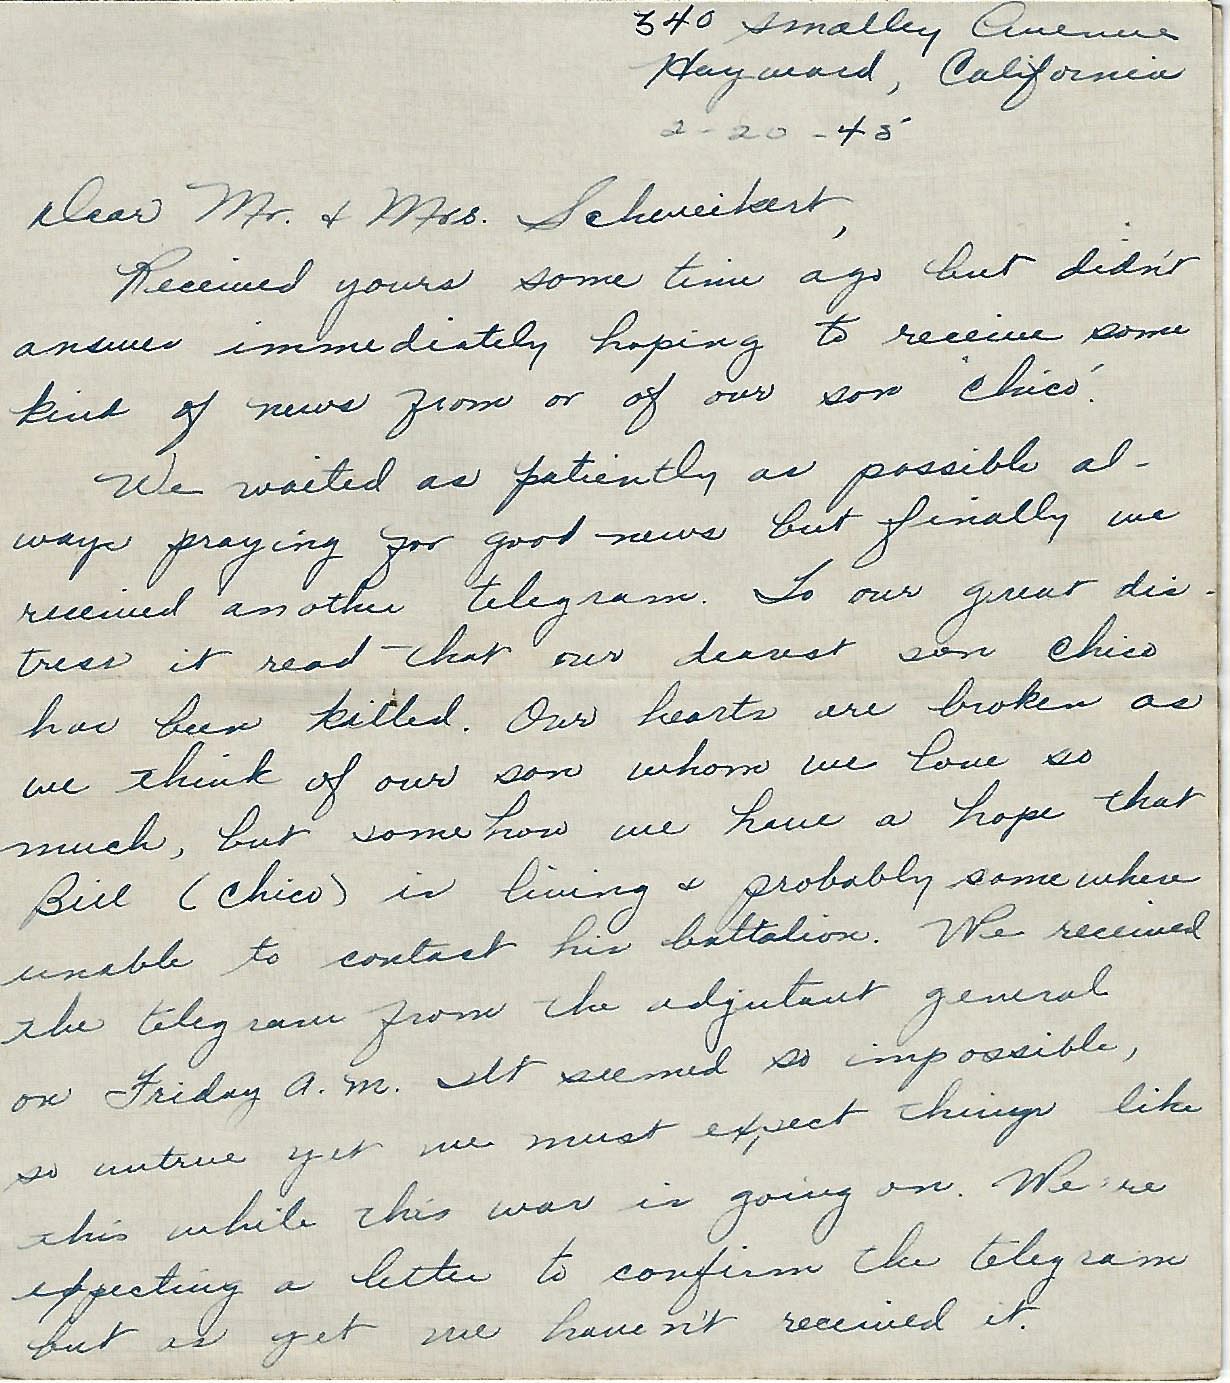 340 Smalley Avenue
Hayward, California
2-20-45
Dear Mr. & Mrs. Schweikert,
Received yours some time ago but didn't
answer immediately hoping to receive some
kind of news from or of our son "Chico".
We waited as patiently as possible al-
ways praying for good news but finally we
received another telegram. To our great dis-
tress it read that our dearest son Chico
has been killed. Our hearts are broken as
we think of our son whom we love so
much, but somehow we have a hope that
Bill (Chico) is living & probably somewhere
unable to contact his battalion. We received
the telegram from the adjutant general
on Friday A.M. It seemed so impossible,
so untrue yet we must expect things like
this while this war is going on. We're
expecting a letter to confirm the telegram
but as yet we haven't received it.